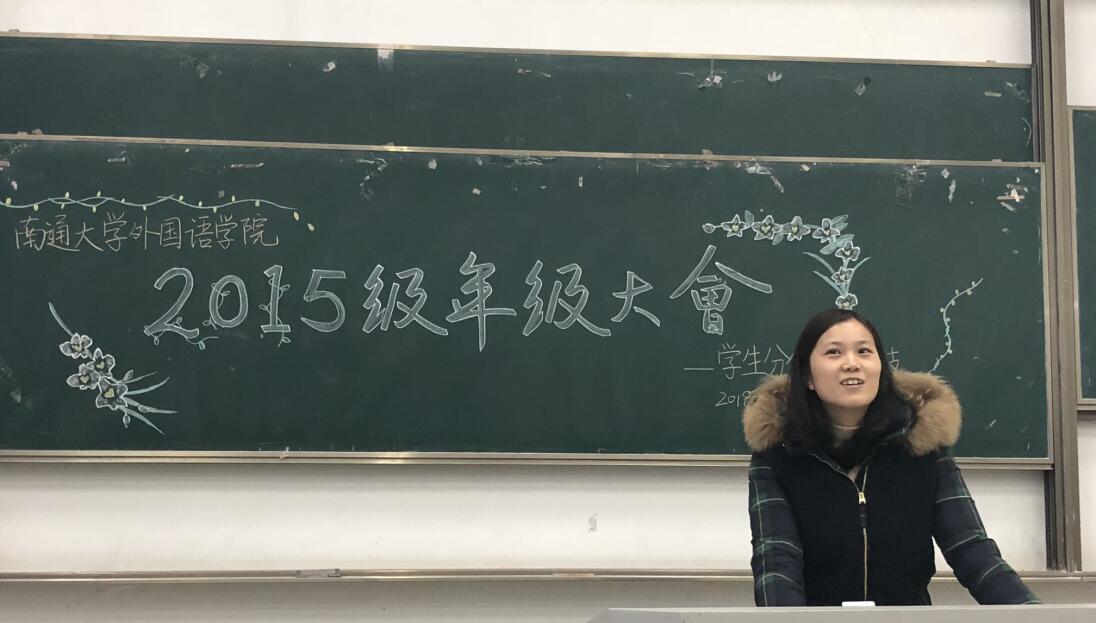 南通大学外国语学院
2015级年级大會
—学生分
2018